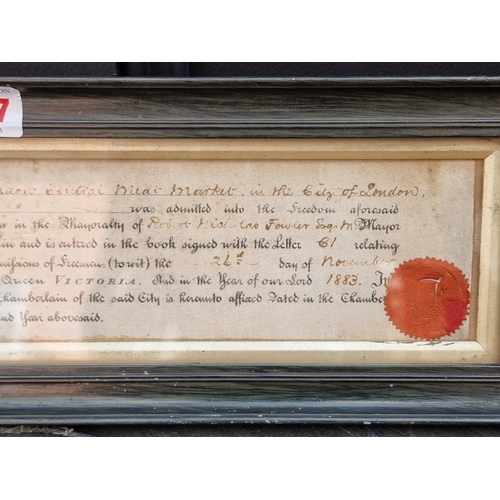 ON
7
5
Central Meat Market, in the City of London,
was admitted into the Freedom aforesaid
in the Mayoralty of Robert Nicholas Fowler Esq. M Mayor
and is entered in the book signed with the Letter C1 relating
of Freemen (to wit) the 24th day of November
Queen VICTORIA. And in the Year of our Lord 1883. In
Chamberlain of the said City is hereunto affixed Dated in the Chamber
and Year abovesaid.